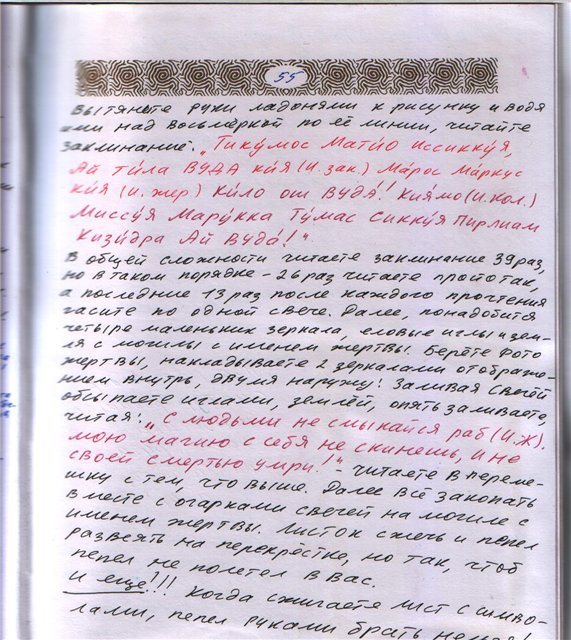 55
Вытяните руки ладонями к рисунку и водя
ими над восьмёркой по её линии, читайте
заклинание: „Тику́мос Мати́о иссикку́я,
Ай ти́ла Вуда ки́я (И. зак.) Ма́рос Ма́ркус
ки́я (И. жер.) Ки́ло от Вуда́! Кия́мо (И. кол.)
Миссу́я Мару́кка Ту́мас Сикку́я Пирлиам
Кизи́дра Ай Вуда́!".
В общей сложности читаете заклинание 39 раз,
но в таком порядке - 26 раз читаете просто так,
а последние 13 раз после каждого прочтения
гасите по одной свече. Далее, понадобится
четыре маленьких зеркала, еловые иглы и зем-
ля с могилы с именем жертвы. Берёте фото
жертвы, накладываете 2 зеркалами отображе-
нием внутрь, двумя наружу! Заливая свечей
обсыпаете иглами, землёй, опять заливаете,
читая: „С людьми не смыкайся раб (И.Ж).
мою магию с себя не скинешь, и не
своей смертью умри!" - читаете в переме-
шку с тем, что выше. Далее всё закопать
вместе с огарками свечей на могиле с
именем жертвы. Листок сжечь и пепел
развеять на перекрёстке, но так, чтоб
пепел не полетел в вас.
И еще!!! Когда сжигаете лист с симво-
лами, пепел руками брать нельзя!